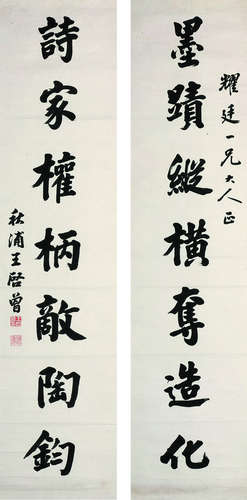 墨蹟縱橫奪造化
耀廷一兄大人正
詩家權柄敵陶鈞
秋浦王啓曾